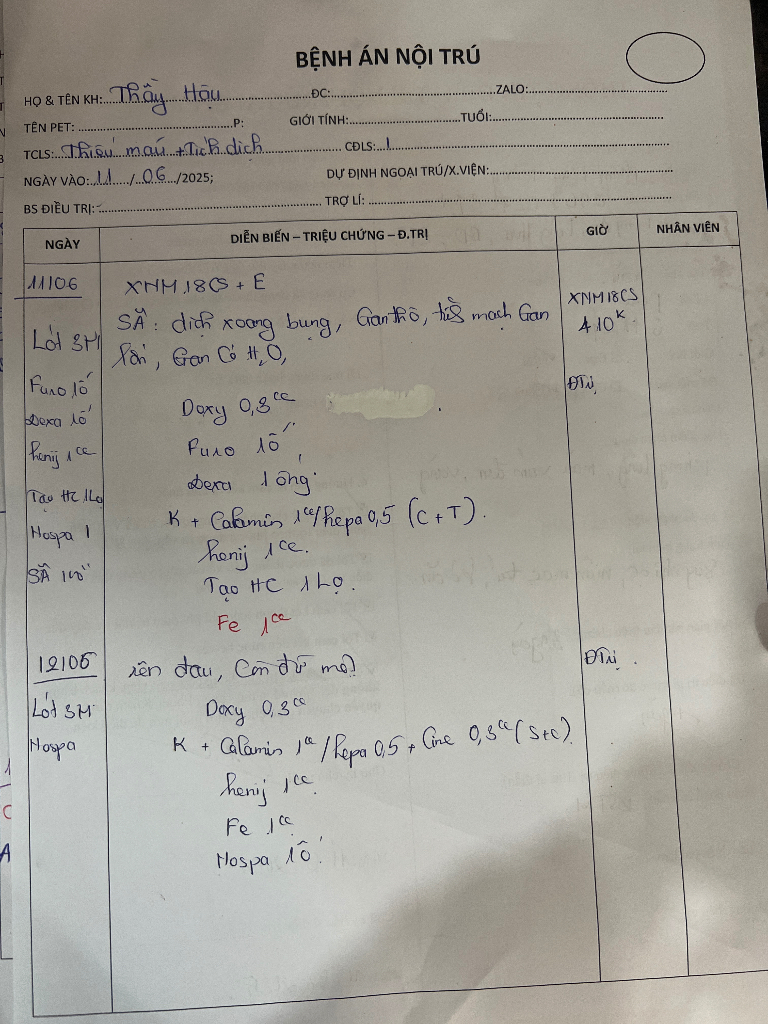 BỆNH ÁN NỘI TRÚ
HỌ & TÊN KH: Thầy Hậu ĐC: ZALO:
TÊN PET: P: GIỚI TÍNH: TUỔI:
TCLS: Thiếu máu + Tích dịch CĐLS: 1
NGÀY VÀO: 11 / 06 /2025; DỰ ĐỊNH NGOẠI TRÚ/X.VIỆN:
BS ĐIỀU TRỊ: TRỢ LÍ:
NGÀY DIỄN BIẾN – TRIỆU CHỨNG – Đ.TRỊ GIỜ NHÂN VIÊN
11/06 XNM 18CS + E XNM18CS
SÂ: dịch xoang bụng, Gan thô, mạch Gan 410K
Lót 3M Gan Có H2O,
Furo 1ố Doxy 0,3cc ĐTrị
Dexa 1ố Furo 1ố
henij 1cc Dexa 1 ống
Tạo HC 1Lọ K + Calamin 1cc/hepa 0,5 (C+T).
Nospa 1 henij 1cc.
SÂ Tạo HC 1 Lọ.
Fe 1cc
12/06 rên đau, Còn ĐTrị.
Lót 3M Doxy 0,3cc
Nospa K + Calamin 1cc/hepa 0,5 + Cine 0,3cc (S+C)
henij 1cc.
Fe 1cc
Nospa 1ố.